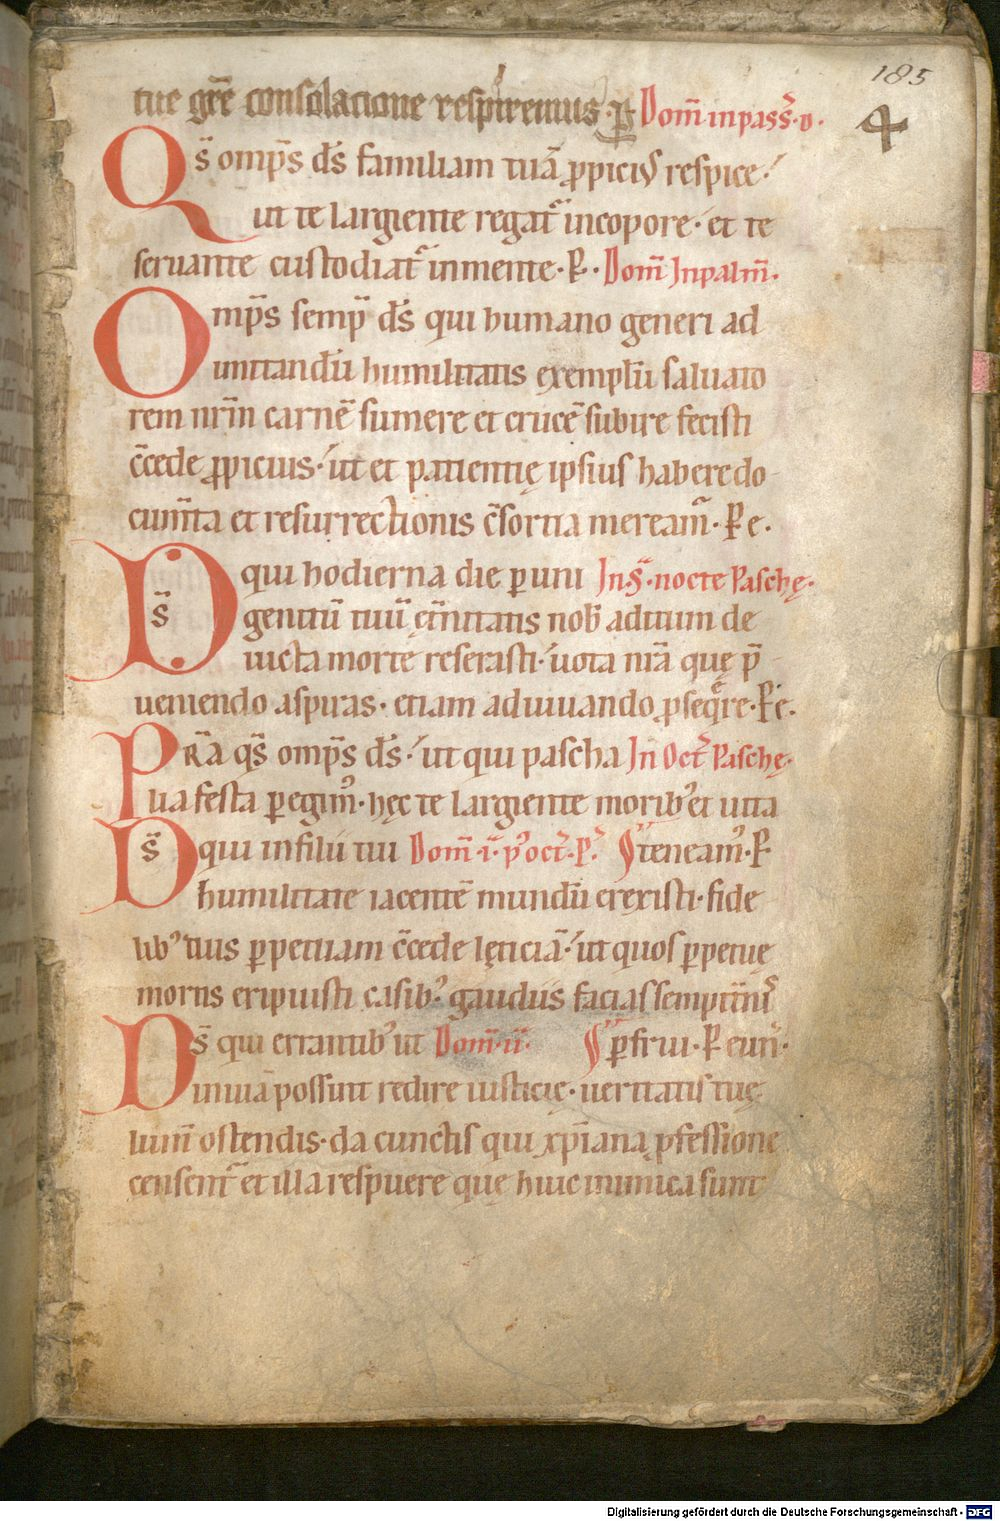 185
4
tue gr̄e consolacione respiremus. P Dom̄ in pass̄. v.
Qs̄ omp̄s ds̄ familiam tuā ꝓpicius respice.
ut te largiente regat᷒ in corpore. et te
seruante custodiat᷒ in mente. P. Dom̄ In palm̄.
Omp̄s semp̄ ds̄ qui humano generi ad
imitandū humilitatis exemplū saluato
rem nr̄m carnē sumere et crucē subire fecisti
c̄cede ꝓpicius. ut et patientię ipsius habere do
cum̄ta et resurrectionis c̄sortia meream᷒. P e.
Ds̄ qui hodierna die ꝑ uni In s̄. nocte Paschę.
genitū tuū ęt̄nitatis nob̄ aditum de
uicta morte reserasti. uota nr̄a quę p̄
ueniendo aspiras. etiam adiuuando ꝓseq̄re. P e.
Pr̄a qs̄ omp̄s ds̄. ut qui pascha In Oct̄ Paschę.
lia festa ꝑegim᷒. hęc te largiente morib᷒ et uita
Ds̄ qui in filii tui Dom̄. i. p᷒ oct̄. P. teneam᷒. P
humilitate iacentē mundū erexisti. fide
lib᷒ tuis ꝑpetuam c̄cede lęticiā. ut quos ꝑpetuę
mortis eripuisti casib᷒. gaudiis facias sempit̄nis
Ds̄ qui errantib᷒ ut Dom̄. ii. ꝑfrui. P eun̄.
in uiā possint redire iusticię. ueritatis tuę
lum̄ ostendis. da cunctis qui xp̄iana ꝓfessione
censent᷒ et illa respuere quę huic inimica sunt
Digitalisierung gefördert durch die Deutsche Forschungsgemeinschaft - DFG